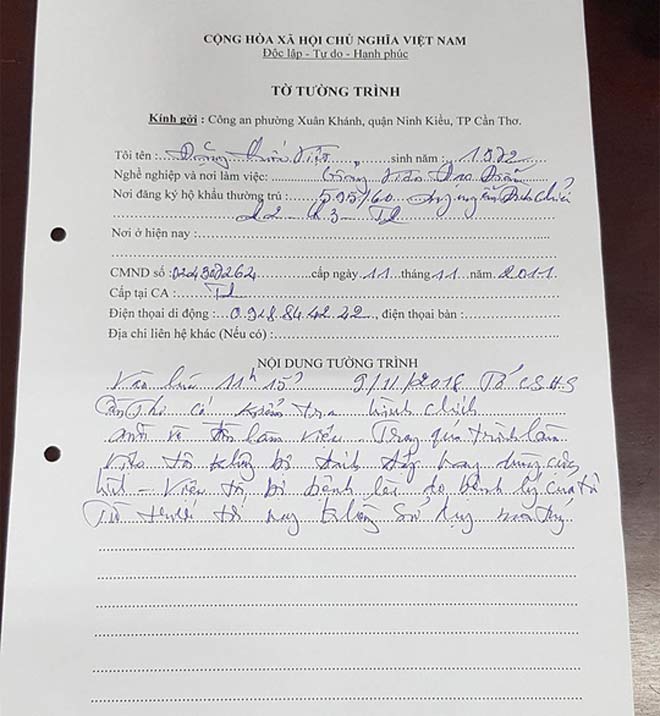 CỘNG HÒA XÃ HỘI CHỦ NGHĨA VIỆT NAM
Độc lập - Tự do - Hạnh phúc
TỜ TƯỜNG TRÌNH
Kính gởi : Công an phường Xuân Khánh, quận Ninh Kiều, TP Cần Thơ.
Tôi tên : Đặng Quốc Việt sinh năm : 1972
Nghề nghiệp và nơi làm việc:
Nơi đăng ký hộ khẩu thường trú : 595/60
Nơi ở hiện nay :
CMND số : cấp ngày 11 tháng 11 năm 2011
Cấp tại CA :
Điện thoại di động : 0918.844222, điện thoại bàn :
Địa chỉ liên hệ khác (Nếu có) :
NỘI DUNG TƯỜNG TRÌNH
Vào lúc 11h15' 9/11/2018 Tổ CSHS
Cần Thơ có kiểm tra hành chính
Trong quá trình làm
việc tôi không bị đánh đập hay dùng
Việc tôi bị bệnh do bệnh lý của tôi
Từ trước tới nay không sử dụng ma túy